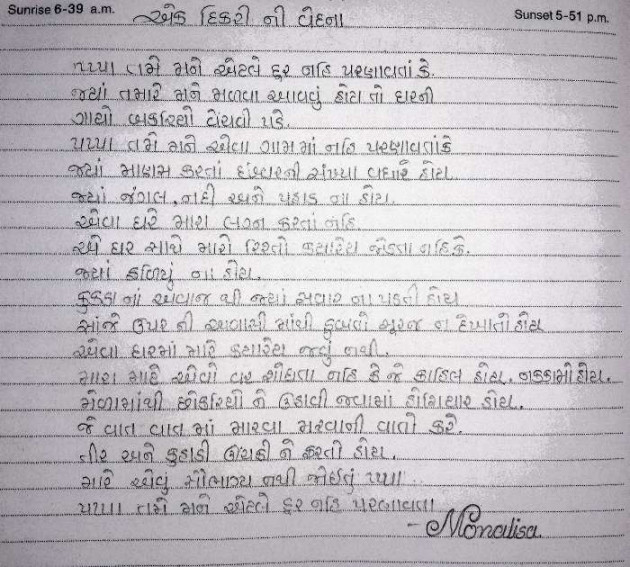 Sunrise 6-39 a.m.
Sunset 5-51 p.m.
એક દિકરી ની વેદના
પપ્પા તમે મને એટલે દુર નહિ પરણાવતાં કે.
જ્યાં તમારે મને મળવા આવવું હોય તો ઘરની
ગાયો બકરિયો વેચવી પડે.
પપ્પા તમે મને એવા ગામ માં નહિ પરણાવતાં કે
જ્યાં માણસ કરતાં ઇશ્વરની સંખ્યા વધારે હોય.
જ્યાં જંગલ, નદી અને પહાડ ના હોય.
એવા ઘરે મારા લગ્ન કરતાં નહિ.
એ ઘર સાથે મારો રિશ્તો ક્યારેય જોડતા નહિ કે.
જ્યાં ફળિયું ના હોય.
કુકડા ના અવાજ થી જ્યાં સવાર ના પડતી હોય
સાંજે ઉપર ની અગાસી માંથી ડુબતો સૂરજ ન દેખાતો હોય
એવા ઘરમાં મારે ક્યારેય જવું નથી.
મારા માટે એવો વર શોધતા નહિ કે જે કાહિલ હોય, નક્કામો હોય.
મેળામાંથી છોકરિયો ને ઉડાવી જવામાં હોશિયાર હોય.
જે વાત વાત માં મારવા મરવાની વાતો કરે.
તીર અને કુહાડી ઉંચકી ને ફરતો હોય.
મારે એવું સૌભાગ્ય નથી જોઈતું પપ્પા
પપ્પા તમે મને એટલે દુર નહિ પરણાવતા
- Monalisa.